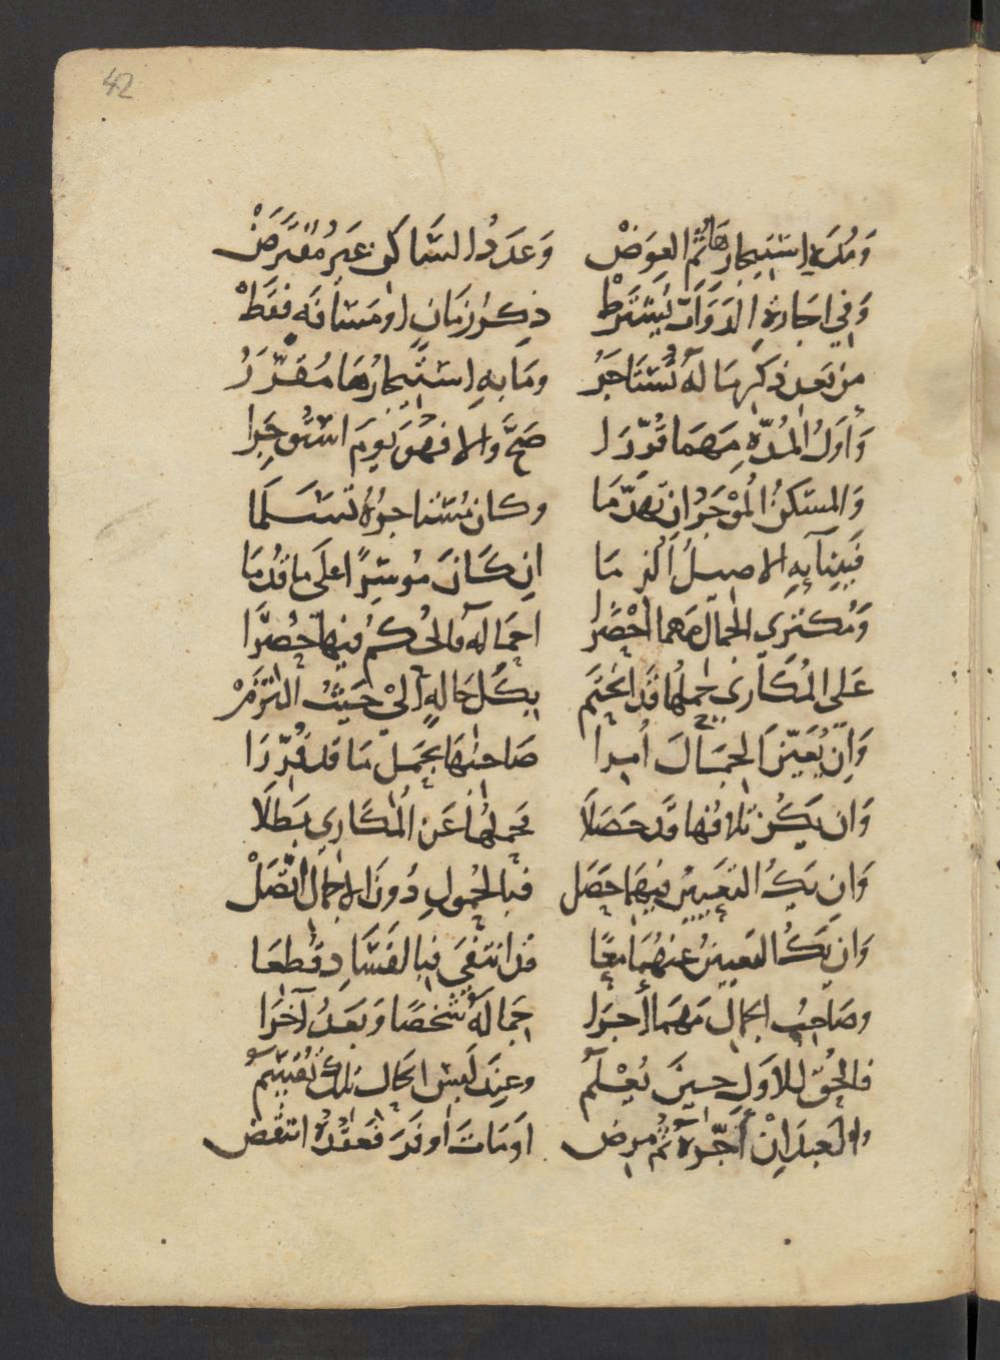 42
وَمُدَةِ اِسْتِيجارِهَا ثُمَّ العِوَضْ وَعَدَدُ السَّاكِنِ غَيرُ مُفتَرَضْ
وَفي اجَارَةِ الدَوَابّ يُشتَرطْ ذِكرُ زمَانٍ او مَسَافَه فقَطْ
مِن بَعدِ ذكرِ مَا لَهُ تُسْتَاجَرُ ومَا بهِ اِستيجَارُهَا مُقَرَّرُ
وَاوَلُ المُدّه مَهمَا قُرِّرَا صَحَّ والا فهْوَ يَومَ استُوجِرَا
وَالمسكنُ المُوْجَرُ اِن تَهدّمَا وكان مُستَاجِرُهُ تسَلمَا
فَبِبِنآيهِ الاصِيلُ اُلزِمَا اِن كَانَ مُوسِرًا علَى مَا قُدمَا
وَمُكتري الجمَال مهما احْضَرا احمَالهُ فالحُكمُ فيها حُصِرَا
عَلى المُكَارِي حملُها قَد انحَتَم بِكُلِ حَالهٍ الىْ حَيثُ التَزَمْ
وَاِن يُعَيّن الجمَالَ اُمِرا صَاحبُهَا بحَملِ مَا قَد قُرِّرَا
وَان يَكُن تلافُها قَد حَصَلَا فَحملُها عَن المُكَارِي بَطَلَا
وَان يَكُ التَعيينُ فيهَا حَصَل فبالحُمولِ دُونَ الاجمالِ اتّصَلْ
وَان يَكُ التَعيينُ عَنهُمَا معًا قد انتفَى فبالفَسَادِ قُطعَا
وصَاحِبُ الجمال مَهمَا اجرَا جمَالَهُ شَخصًا وَبَعدُ آخَرَا
فالحَق للاوَلِ حينَ يُعْلَمُ وعِندَ لَبس الحَال تلك تُقسَمُ
والعبد اِنْ اَجّرَهُ ثُم مرض اومَاتَ اوندَّ فَعَقْدُهُ انتَقض